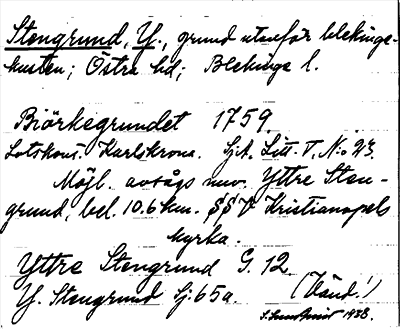 Stengrund, Y., grund utanför blekinge-
kusten; Östra hd; Blekinge l.
Biörkegrundet 1759
Lotskont. Karlskrona. SjA. Litt. T, No 23.
Möjl. avsågs nuv. Yttre Sten-
grund, bel. 10.6 km. SSV Kristianopels
kyrka.
Yttre Stengrund G. 12
Y. Stengrund Sj: 65a (Vänd!)
1938